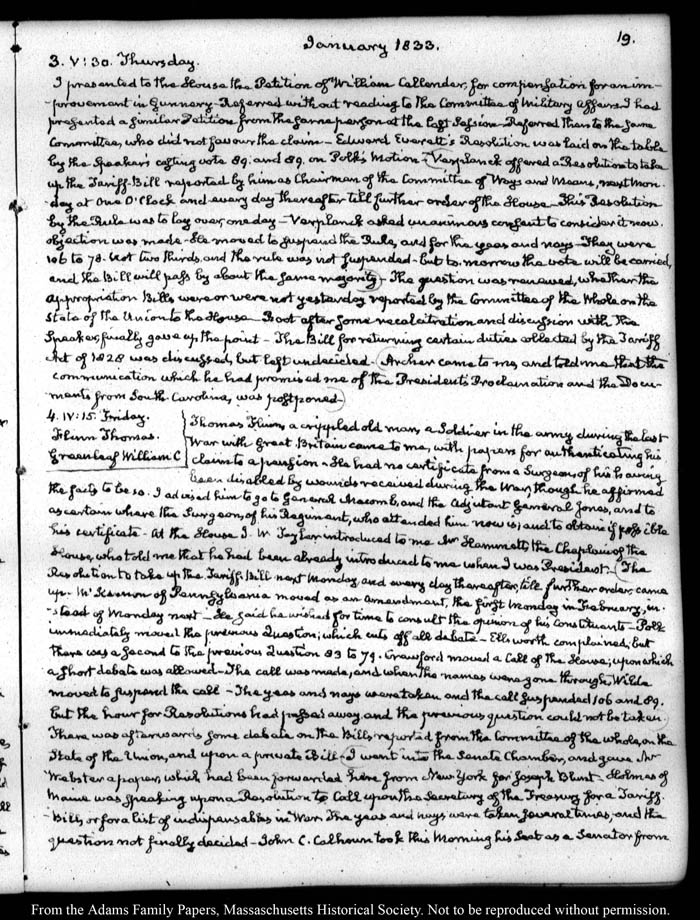 January 1833.
19.
3. V: 30. Thursday.
I presented to the House the Petition of William Callender, for compensation for an im-
-provement in Gunnery. Referred without reading to the Committee of Military affairs. I had
presented a similar Petition from the same person at the last Session. Referred then to the same
Committee, who did not favour the claim – Edward Everett's Resolution was laid on the table
by the Speaker's casting vote 89. and 89. on Polk's Motion – Verplanck offered a Resolution to take
up the Tariff Bill reported by him as Chairman of the Committee of Ways and Means, next Mon-
-day at One O'Clock and every day thereafter till further order of the House – This Resolution
by the Rule was to lay over, one day – Verplanck asked unanimous consent to consider it now.
objection was made – He moved to suspend the Rule, and for the yeas and nays – They were
106 to 78. Not two thirds, and the rule was not suspended – but to-morrow the vote will be carried,
and the Bill will pass by about the same majority – The question was renewed, whether the
appropriation Bills were or were not yesterday reported by the Committee of the Whole on the
State of the Union to the House – Root after some recalcitration and discussion with the
Speaker, finally gave up the point – The Bill for returning certain duties collected by the Tariff
Act of 1828 was discussed, but left undecided – Archer came to me, and told me that the
communication which he had promised me of the President's Proclamation and the Docu-
-ments from South-Carolina, was postponed –
4. IV: 15. Friday.
Flinn Thomas.
Greenleaf William C
Thomas Flinn, a crippled old man, a Soldier in the army during the last
War with Great Britain came to me, with papers for authenticating his
claim to a pension – He had no certificate from a Surgeon, of his having
been disabled by wounds received during the War, though he affirmed
the facts to be so. I advised him to go to General Macomb, and the Adjutant General Jones, and to
ascertain where the Surgeon, of his Regiment, who attended him now is; and to obtain if possible
his certificate – At the House J. W. Taylor introduced to me Mr Hammett, the Chaplain of the
House, who told me that he had been already introduced to me when I was President – The
Resolution to take up the Tariff Bill next Monday and every day thereafter, till further order, came
up – McKennan of Pennsylvania moved as an amendment, the first Monday in February, in-
-stead of Monday next – He said he wished for time to consult the opinion of his Constituents – Polk
immediately moved the previous Question; which cuts off all debate – Ellsworth complained; but
there was a second to the previous Question 83 to 79. Crawford moved a Call of the House; upon which
a short debate was allowed – The call was made; and when the names were gone through, Wilde
moved to suspend the call – The yeas and nays were taken and the call suspended 106 and 89.
but the hour for Resolutions had passed away and the previous question could not be taken
There was afterwards some debate on the Bills reported from the Committee of the whole, on the
State of the Union, and upon a private Bill – I went into the Senate Chamber, and gave Mr
Webster a paper, which had been forwarded here from New York for Joseph Blunt – Holmes of
Maine was speaking upon a Resolution to Call upon the Secretary of the Treasury for a Tariff-
-Bill, or for a list of indispensables in War. The yeas and nays were taken several times, and the
question not finally decided – John C. Calhoun took this Morning his Seat as a Senator from
From the Adams Family Papers, Massachusetts Historical Society. Not to be reproduced without permission.